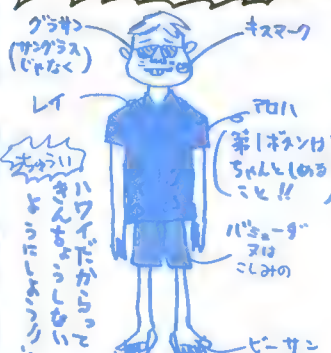 グラサン
(サングラス
じゃなく)
キスマーク
レイ
アロハ
(第1ボタンは
ちゃんとしめる
こと!!
バミューダ
又は
こしみの
ビーサン
ちゅうい
ハワイだからって
きんちょうしない
ようにしよう!!